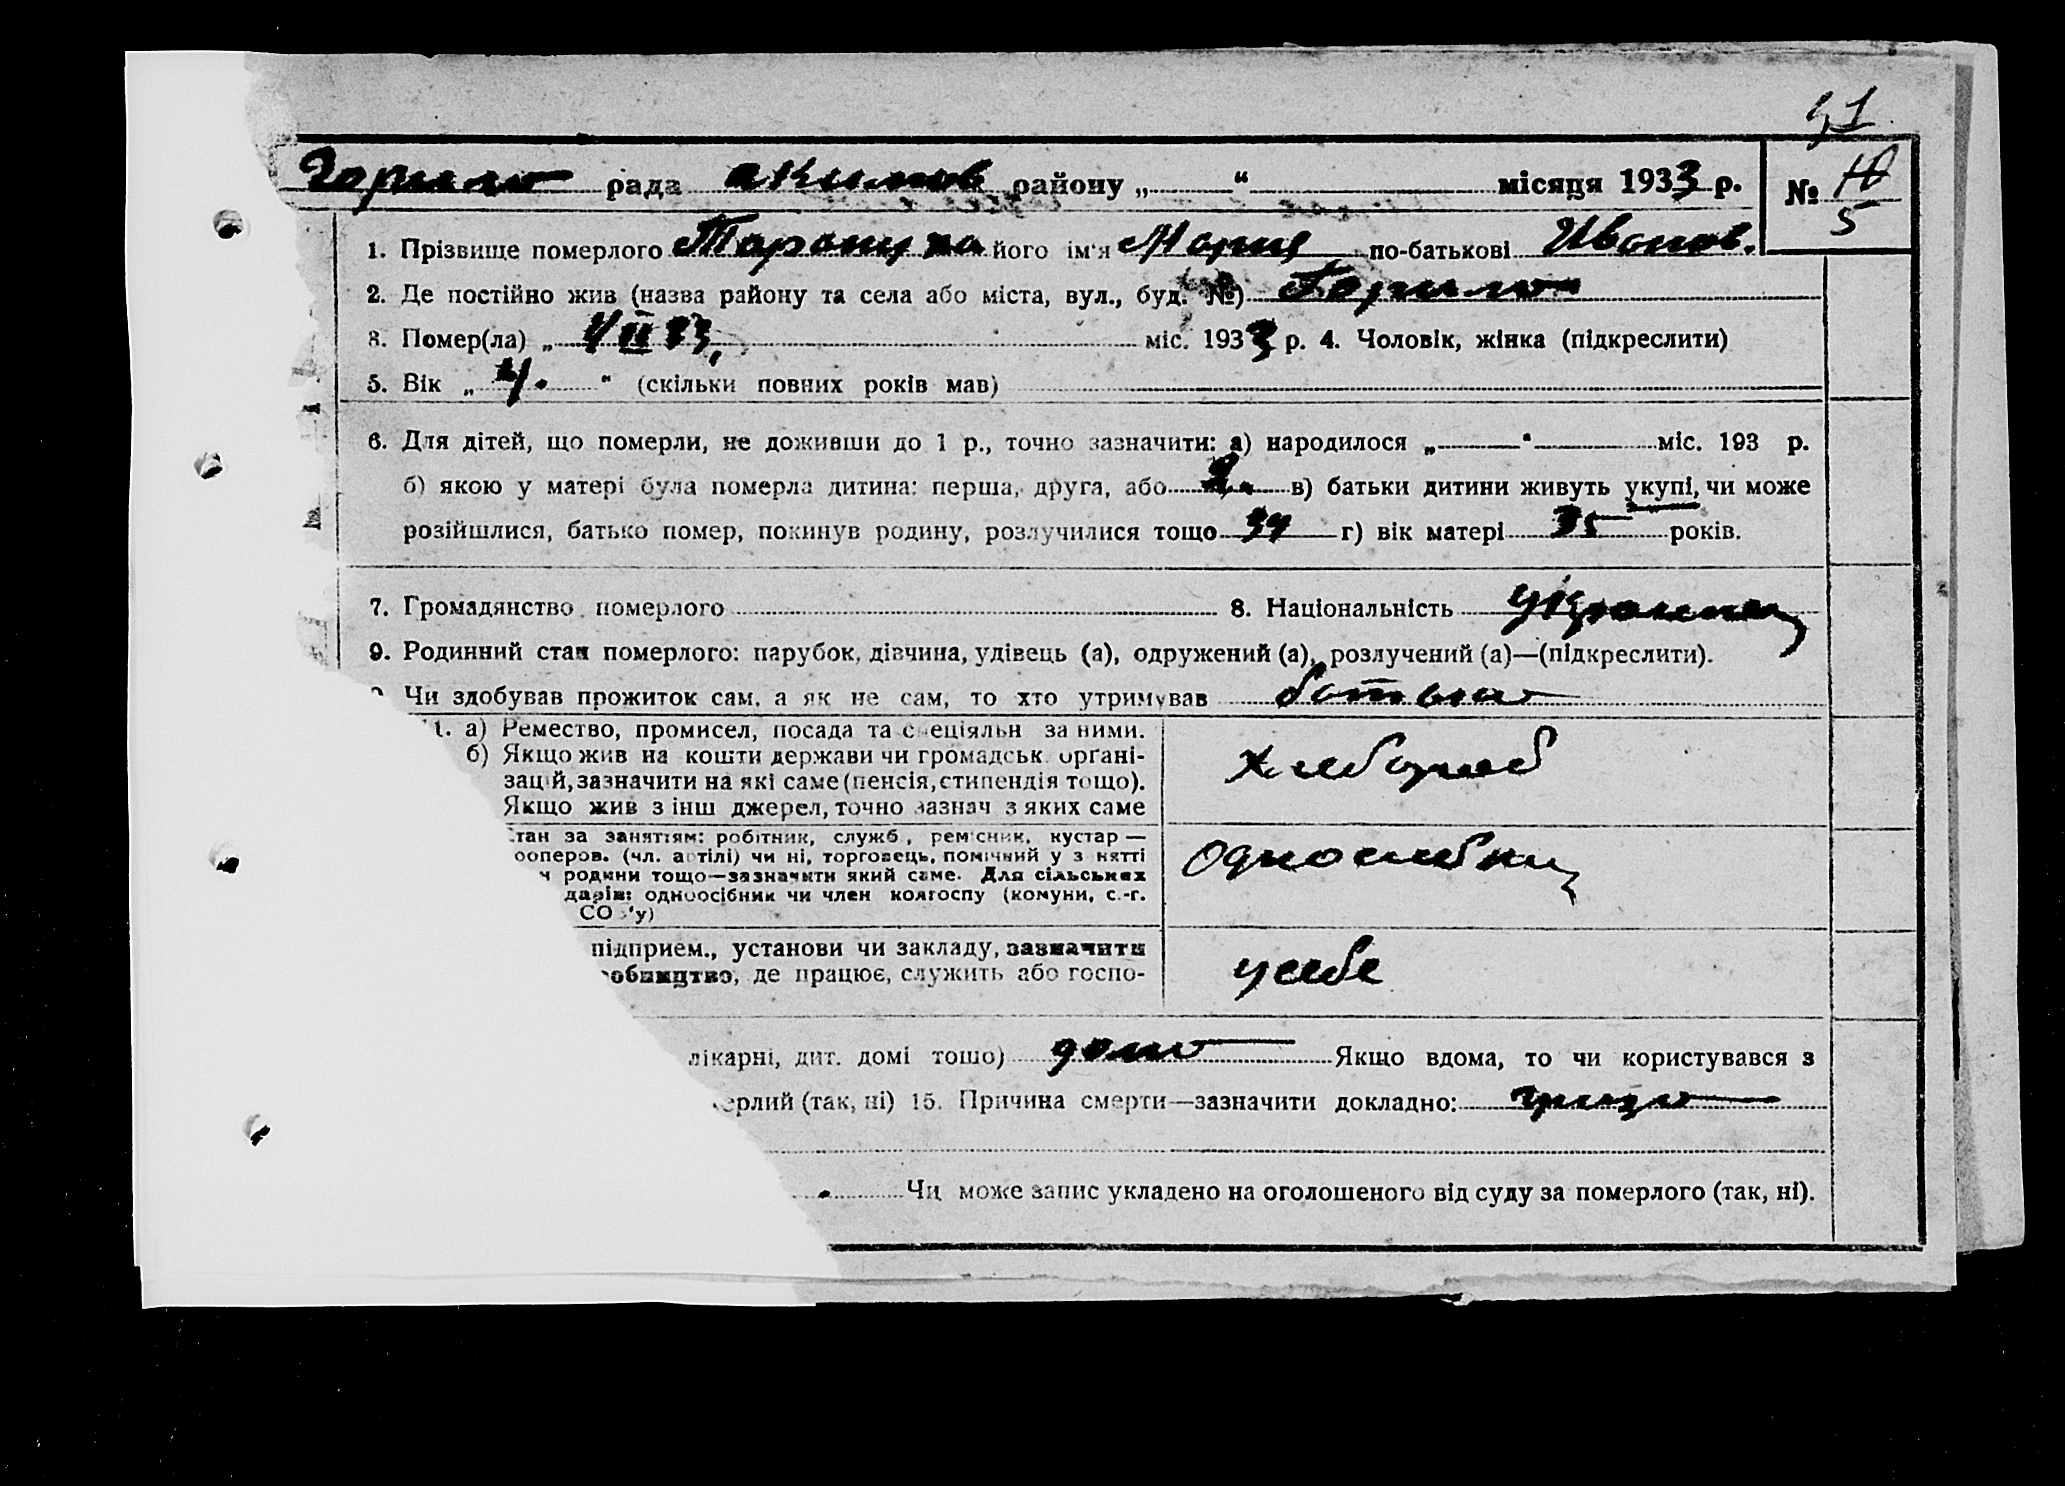 51
рада акимов району „ “ місяця 1933 р. № 10
5
1. Прізвище померлого його ім'я Мария по-батькові Иванов.
2. Де постійно жив (назва району та села або міста, вул., буд. №)
3. Помер(ла) „ міс. 1933 р. 4. Чоловік, жінка (підкреслити)
5. Вік „ 4. “ (скільки повних років мав)
6. Для дітей, що померли, не доживши до 1 р., точно зазначити: а) народилося „ “ міс. 193 р.
б) якою у матері була померла дитина: перша, друга, або в) батьки дитини живуть укупі, чи може
розійшлися, батько помер, покинув родину, розлучилися тощо 34 г) вік матері 35 років.
7. Громадянство померлого 8. Національність
9. Родинний стан померлого: парубок, дівчина, удівець (а), одружений (а), розлучений (а)—(підкреслити).
Чи здобував прожиток сам, а як не сам, то хто утримував
1. а) Ремество, промисел, посада та спеціяльн за ними. хлебороб
б) Якщо жив на кошти держави чи громадськ. органі-
зацій, зазначити на які саме (пенсія, стипендія тощо).
Якщо жив з інш джерел, точно зазнач з яких саме
стан за заняттям: робітник, служб., ремісник, кустар —
ооперов. (чл. артілі) чи ні, торговець, помічний у з нятті
родини тощо—зазначити який саме. Для сільських
дарів: одноосібник чи член колгоспу (комуни, с.-г.
СО 'у)
підприєм., установи чи закладу, зазначити у себе
обництво, де працює, служить або госпо-
лікарні, дит. домі тошо) дома Якщо вдома, то чи користувався з
ерлий (так, ні) 15. Причина смерти—зазначити докладно:
Чи може запис укладено на оголошеного від суду за померлого (так, ні).